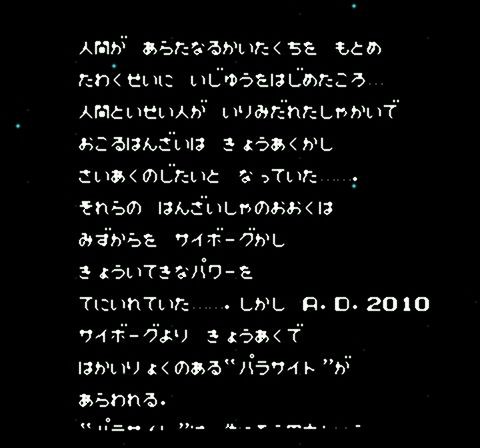 人間が あらたなるかいたくちを もとめ
たわくせいに いじゅうをはじめたころ…
人間といせい人が いりみだれたしゃかいで
おこるはんざいは きょうあくかし
さいあくのじたいと なっていた…….
それらの はんざいしゃのおおくは
みずからを サイボーグかし
きょういてきなパワーを
てにいれていた……. しかし A.D.2010
サイボーグより きょうあくで
はかいりょくのある“パラサイト”が
あらわれる.